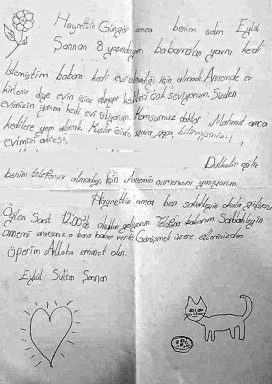 Hayrettin Güngör amca benim adım Eylül
Sannan 8 yaşındayım babamdan yavru kedi
istemiştim babam kedi evi olmadığı için almadı Annemde ev
kirlenir diye evin içine almıyor kedileri çok seviyorum. Sizden
evimizin yanına kedi evi istiyorum. Komşumuz doktor Mahmut amca
kedilere yem alacak
evimizi adresi:
Dulkadir
benim telefonum olmadığı için Annemin numarasını yazıyorum.
Hayrettin amca ben sabahleyin okula gidiyorum
Öylen Saat 12.00'de okuldan geliyorum. Telefona bakarım. Sabahleyin
annemi ararsanız o bana haber verir. Görüşmek üzere ellerinizden
öperim Allaha emanet olun.
Eylül Sultan Sannan